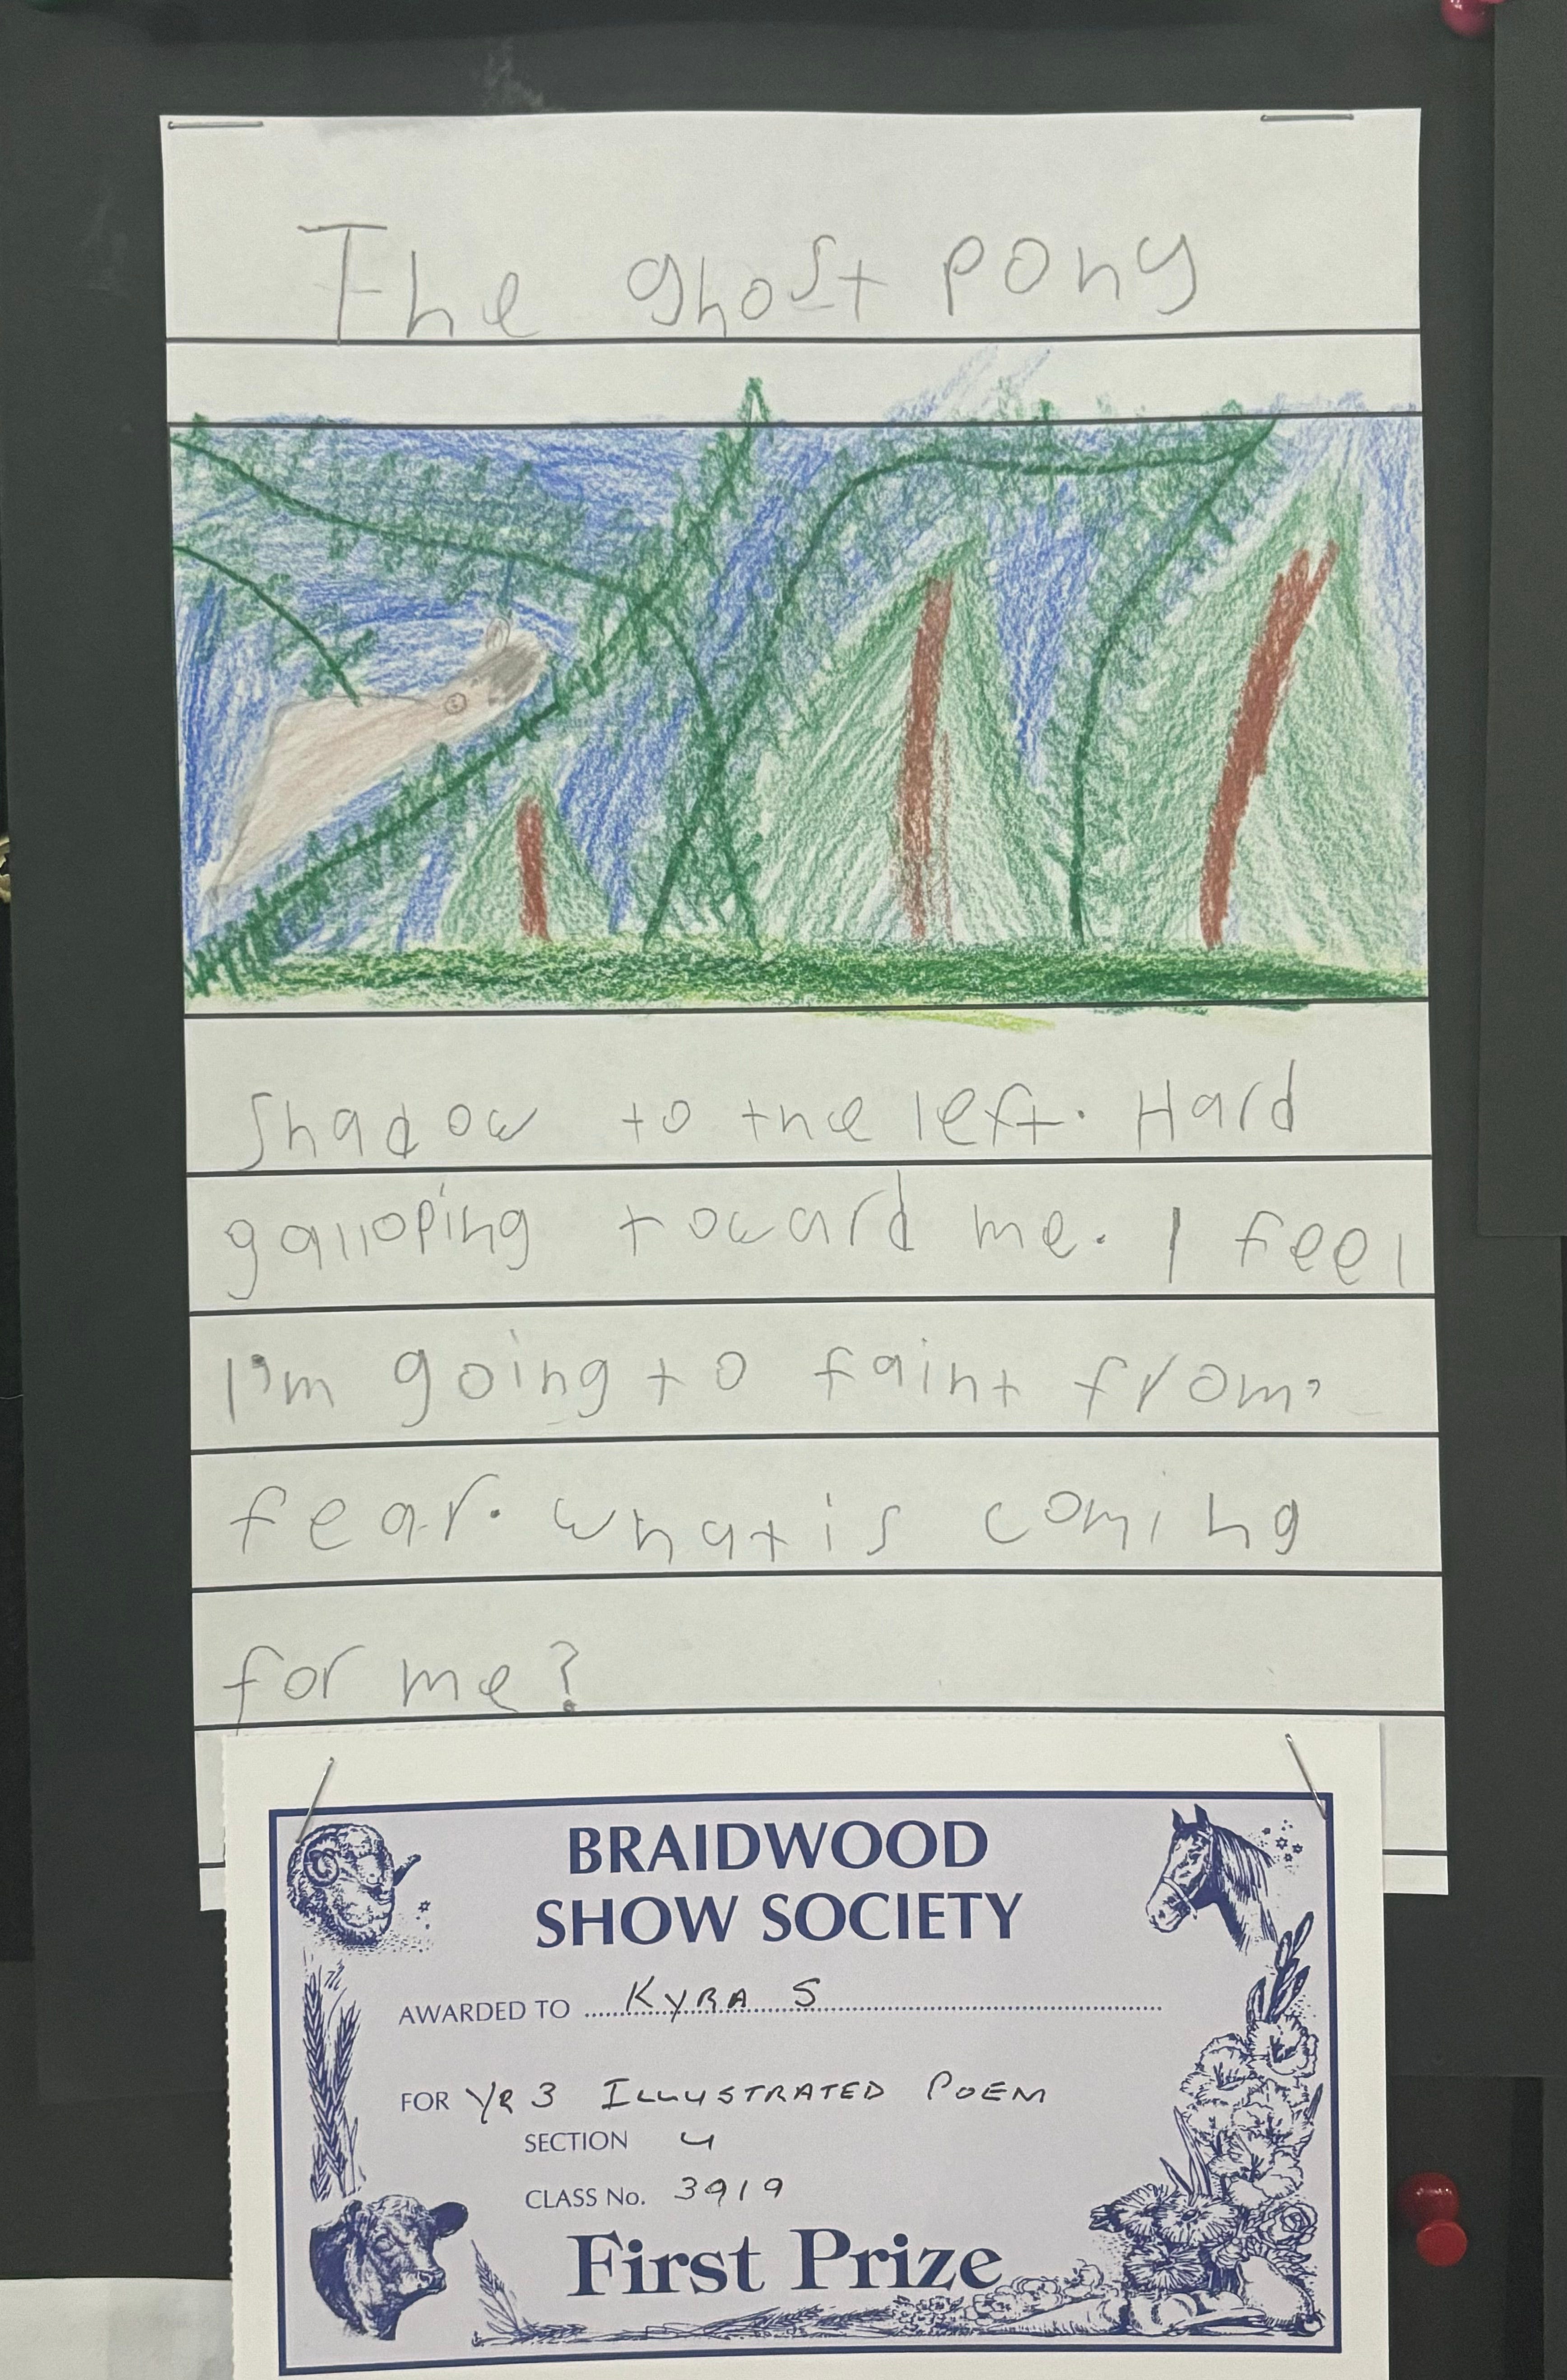 The ghost pony
Shadow to the left. Hard
galloping toward me. I feel
I'm going to faint from
fear. what is coming
for me?
BRAIDWOOD
SHOW SOCIETY
AWARDED TO KYRA S
FOR YR 3 ILLUSTRATED POEM
SECTION 4
CLASS No. 3919
First Prize